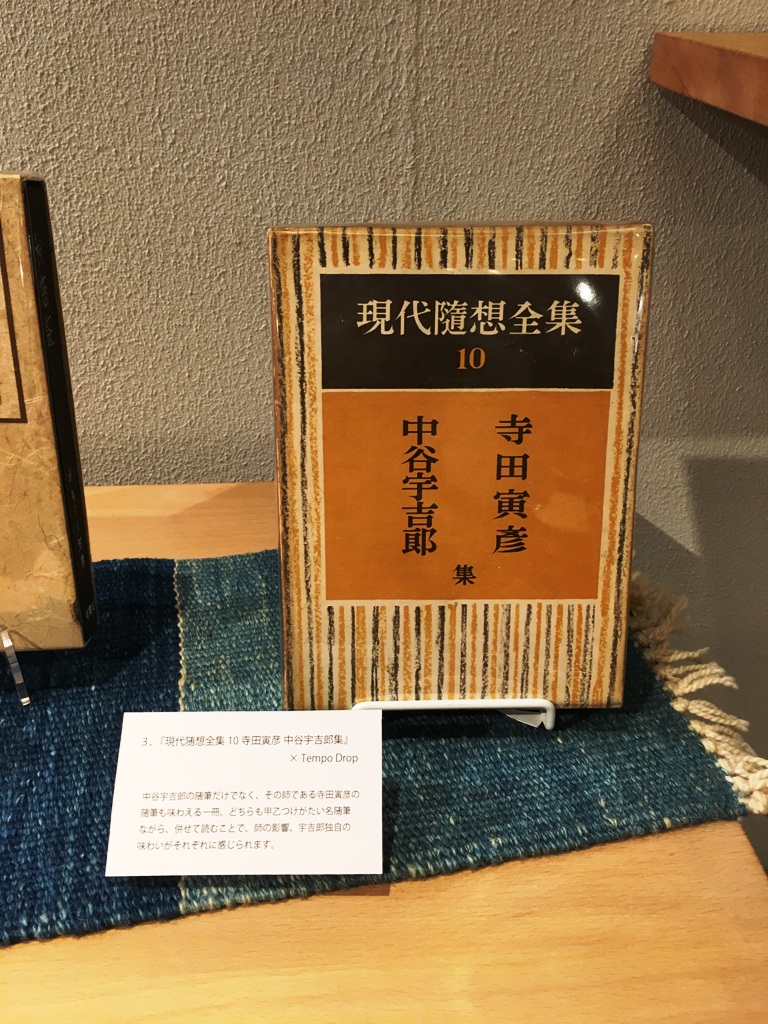 現代隨想全集
10
寺田寅彦
中谷宇吉郎
集
3．『現代随想全集 10 寺田寅彦 中谷宇吉郎集』
× Tempo Drop
中谷宇吉郎の随筆だけでなく、その師である寺田寅彦の
随筆も味わえる一冊。どちらも甲乙つけがたい名随筆
ながら、併せて読むことで、師の影響、宇吉郎独自の
味わいがそれぞれに感じられます。